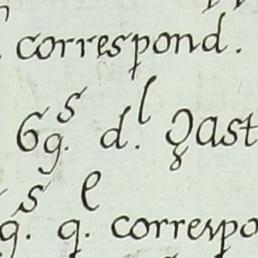 correspond.
6g.s d.l Çast
g.s q.e correspo